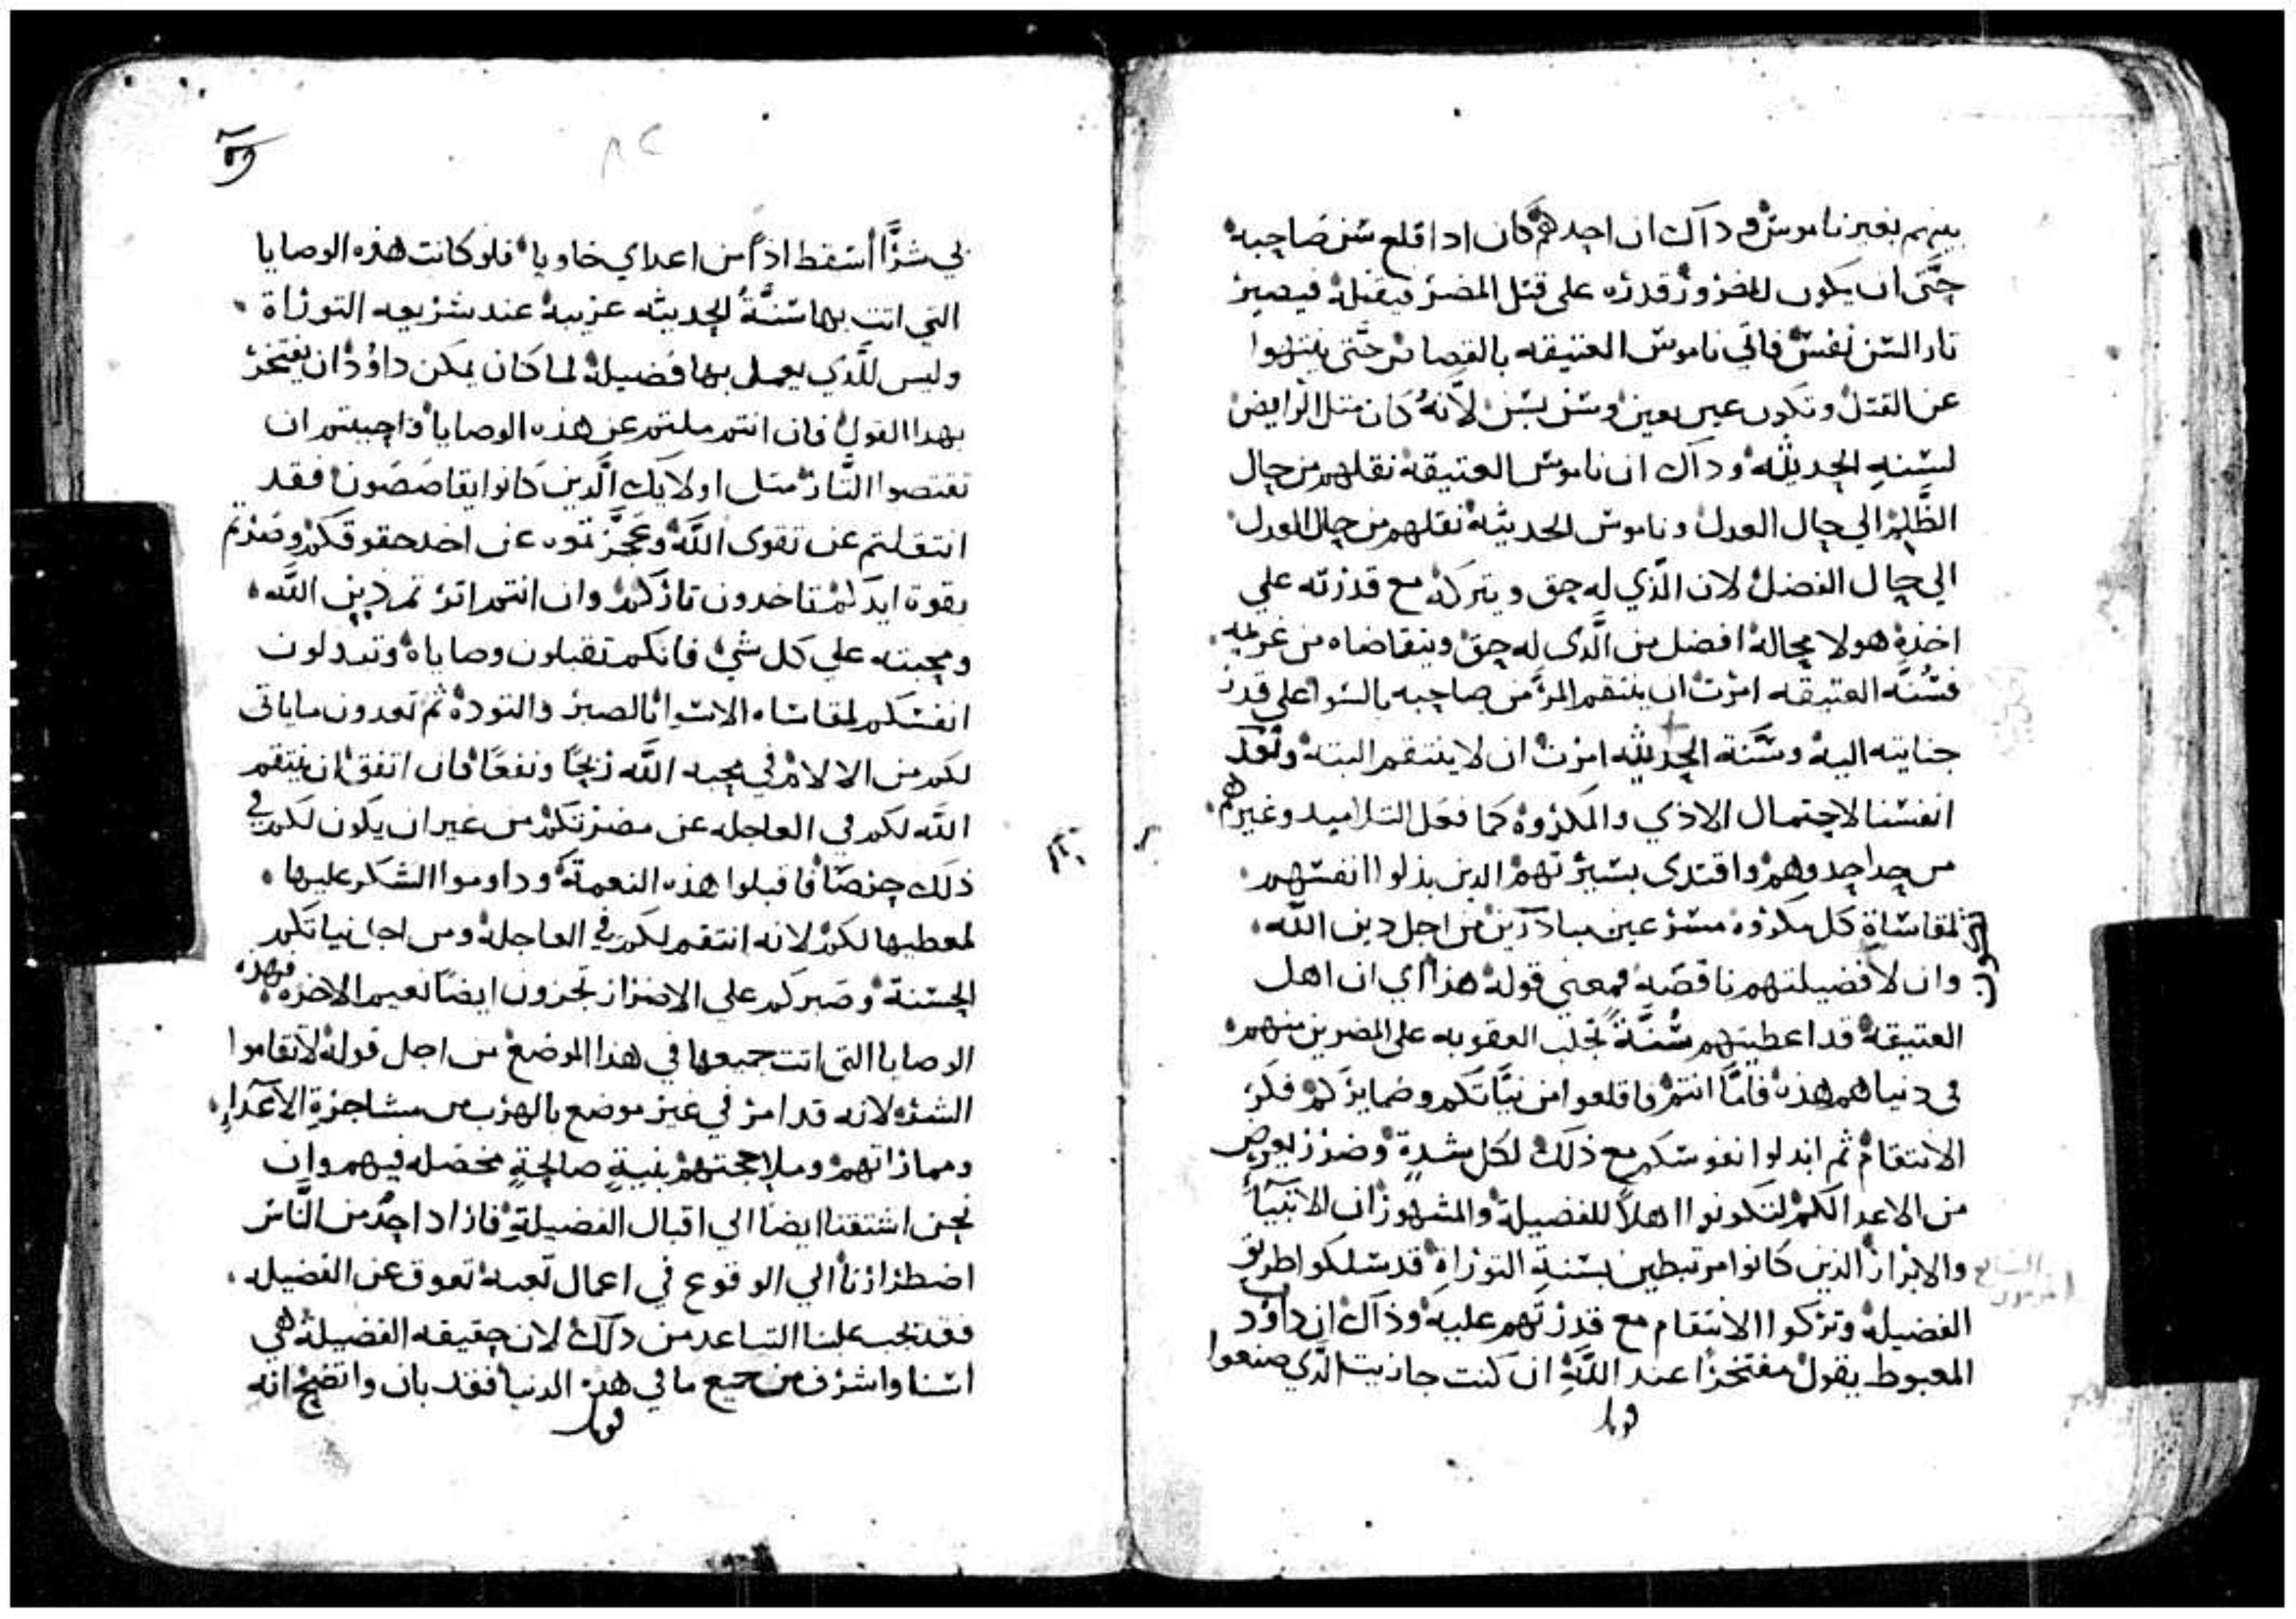 بينهم بغير ناموس وداك ان احدهم كان ادا قلع سن صاحبه
حتى ان يكون للمضرور قدره على قتل المضر فيقتله فيصير
تار السن نفس فاتي ناموس العتيقه بالقصاص حتى ينتهوا
عن القتل وتكون عين بعين وسن بسن لأنه كان متل الرايض
لسنة الحديثه وداك ان ناموس العتيقه نقلهم من حال
الظلم الي حال العدل وناموس الحديثه نقلهم من حال العدل
الي حال الفضل لان الذي له حق ويتركه مع قدرته علي
اخذه هو لا محاله افضل من الذى له حق ويتقاضاه من غريمه
فسنة العتيقه امرت ان ينتقم المرّ من صاحبه بالسوا على قدر
جنايته اليه وسنة الحديثه امرت ان لا ينتقم البته ونعد
انفسنا لاحتمال الاذي والمكروه كما فعل التلاميد وغيرهم
من حدا حدوهم واقتدى بسيرتهم الدين بذلوا انفسهم
لمقاساة كل مكروه مسرعين مبادرين من اجل دين الله
وان لا فضيلتهم ناقصه فمعني قوله هذا اي ان اهل
العتيقه قد اعطيتهم سنّة تجلب العقوبه على المضرين منهم
في دنياهم هذه فامّا انتم فاقلعوا من نيّاتكم وضمايركم فكر
الانتقام ثم ابدلوا نفوسكم مع ذلك لكل شدة وضرر يعرض
من الاعدا لكم لتكونوا اهلاً للفضيلة والمشهور ان الانبيآء
والابرار الدين كانوا مرتبطين بسنة التوراة قد سلكوا طريق
الفضيلة وتركوا الانتقام مع قدرتهم عليه وذاك ان داوُد
المعبوط يقول مفتخرا عند الله ان كنت جازيت الذي صنعوا
لي شرّاً أسقط اذاً من اعداي خاويا فلو كانت هذه الوصايا
التي اتت بها سنّة الحديثه غريبة عند شريعه التوراة
وليس للّذي يعمل بها فضيلة لما كان يمكن داوُد ان يفتخر
بهدا القول فان انتم ملتم عن هذه الوصايا واحببتم ان
تقتصوا التار متل اولايك الّذين كانوا يقاصصون فقد
انتقلتم عن تقوى الله وعجّزتموه عن اخد حقوقكم وصرتم
بقوة ايدكم تاخدون تاركم وان اتتم اترتم دين الله
ومحبته علي كل شي فانكم تقبلون وصاياه وتبدلون
انفسكم لمقاساه الاسوا بالصبر والتودة ثم تعدون ما ياتي
لكم من الالام في محبه الله ربحًا ونفعًا فان اتفق ان ينتقم
الله لكم في العاجله عن مضرتكم من غير ان يكون لكم في
ذلك حرصًا فاقبلوا هذه النعمة وداوموا الشكر عليها
لمعطيها لكم لانه انتقم لكم في العاجله ومن اجل نياتكم
الحسنة وصبركم على الاضرار تجزون ايضًا نعيم الاخره فهذه
الوصايا التي اتت جميعها في هذا الموضع من اجل قوله لا تقاموا
الشره لانه قد امر في غير موضع بالهرب من مشاجرة الاعدآء
ومماراتهم وملاججتهم بنيةٍ صالحةٍ مخضله فيهم وان
نحن اشتقنا ايضا الي اقبال الفضيلة فازاد احدٌ من النّاس
اضطرارنا الي الوقوع في اعمال تعبة تعوق عن الفضيله
فقد يجب علينا التباعد من دلك لان حقيقه الفضيلة هي
اسنا واشرف من جميع ما في هذه الدنيا فقد بان واتضح انه